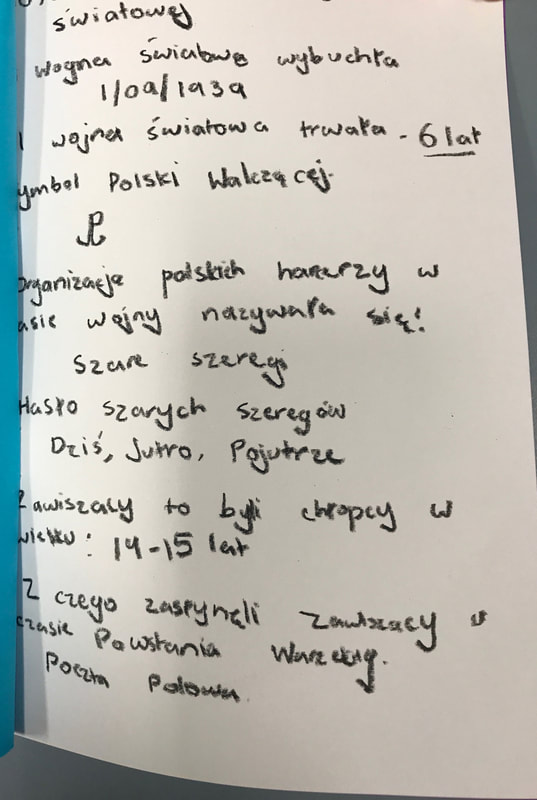 światowej
wojna światowa wybuchła
1/09/1939
wojna światowa trwała - 6 lat
ymbol Polski Walczącej.
organizacja polskich harcerzy w
asie wojny nazywała się:
Szare szeregi
Hasło szarych szeregów
Dziś, Jutro, Pojutrze
Zawiszacy to byli chłopcy w
wieku: 14-15 lat
Z czego zasłynęli Zawiszacy w
czasie Powstania Warszawy.
Poczta Polowa.